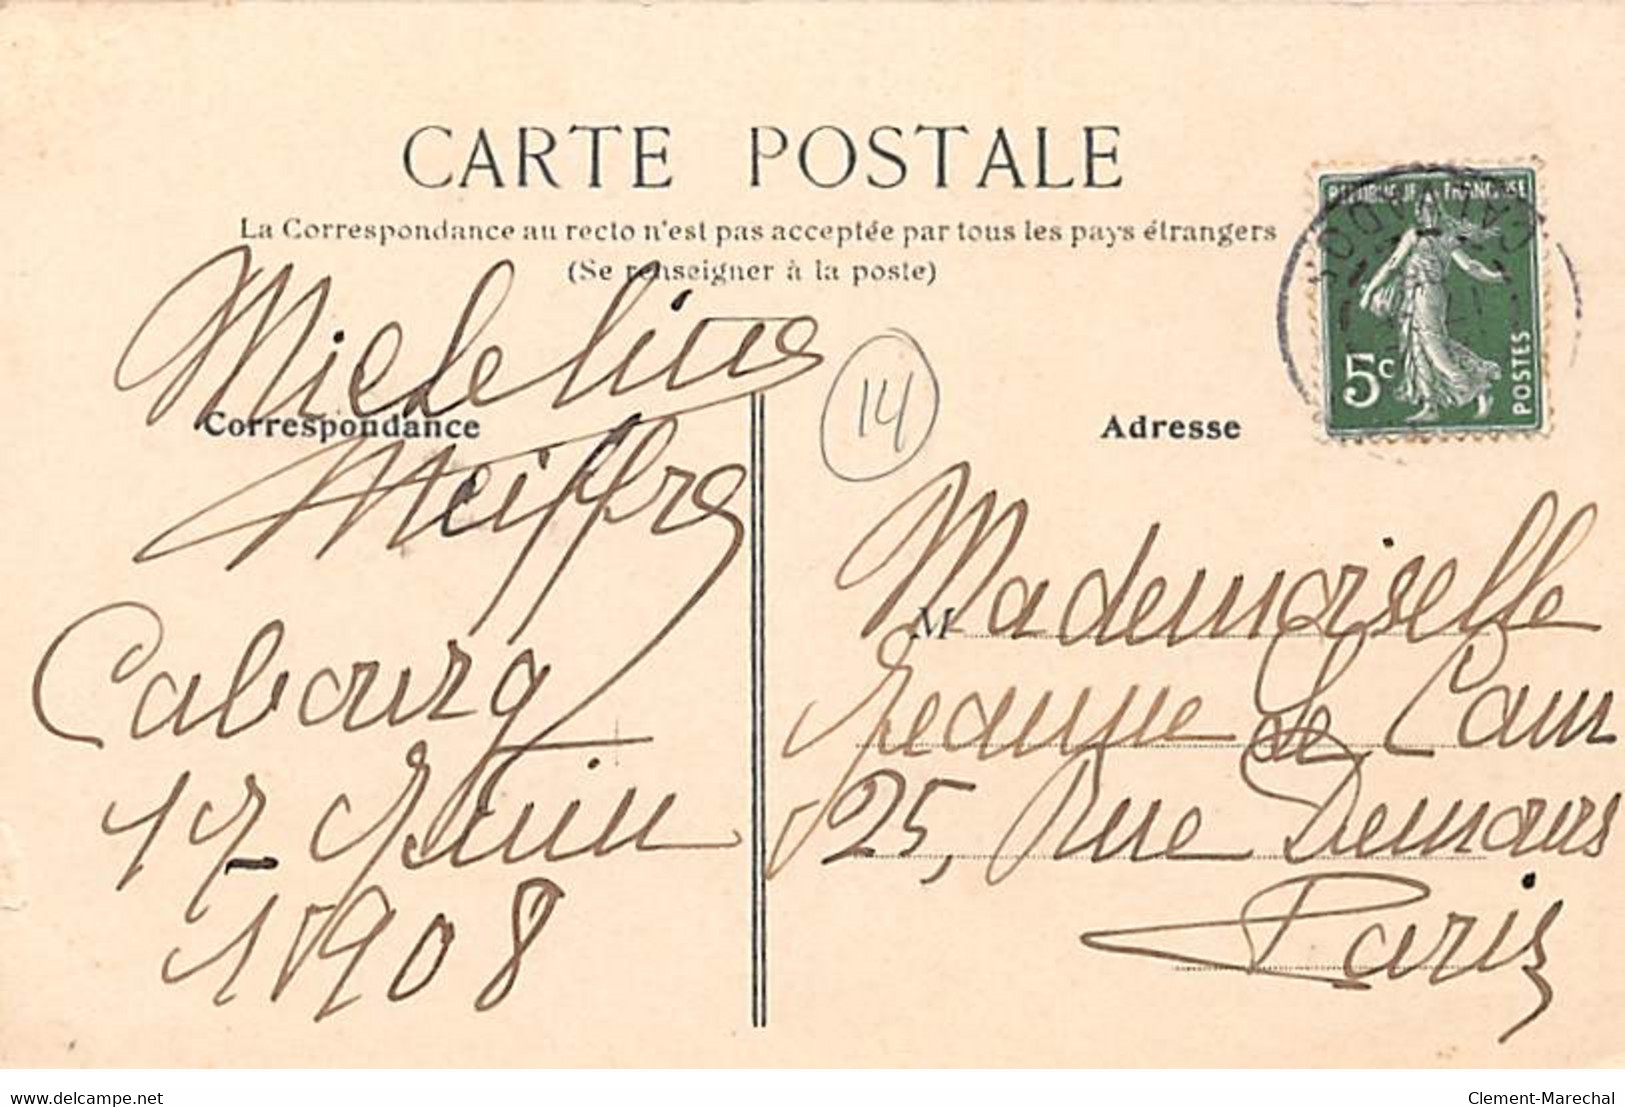 CARTE POSTALE
La Correspondance au recto n'est pas acceptée par tous les pays étrangers
(Se renseigner à la poste)
REPUBLIQUE FRANÇAISE
5c
POSTES
CALVADOS
14
Correspondance
Micheline
Meiffre
Cabourg
17 Juin
1908
Adresse
M
Mademoiselle
Jeanne Le Cam
25, Rue Demours
Paris
www.delcampe.net
Clement-Marechal